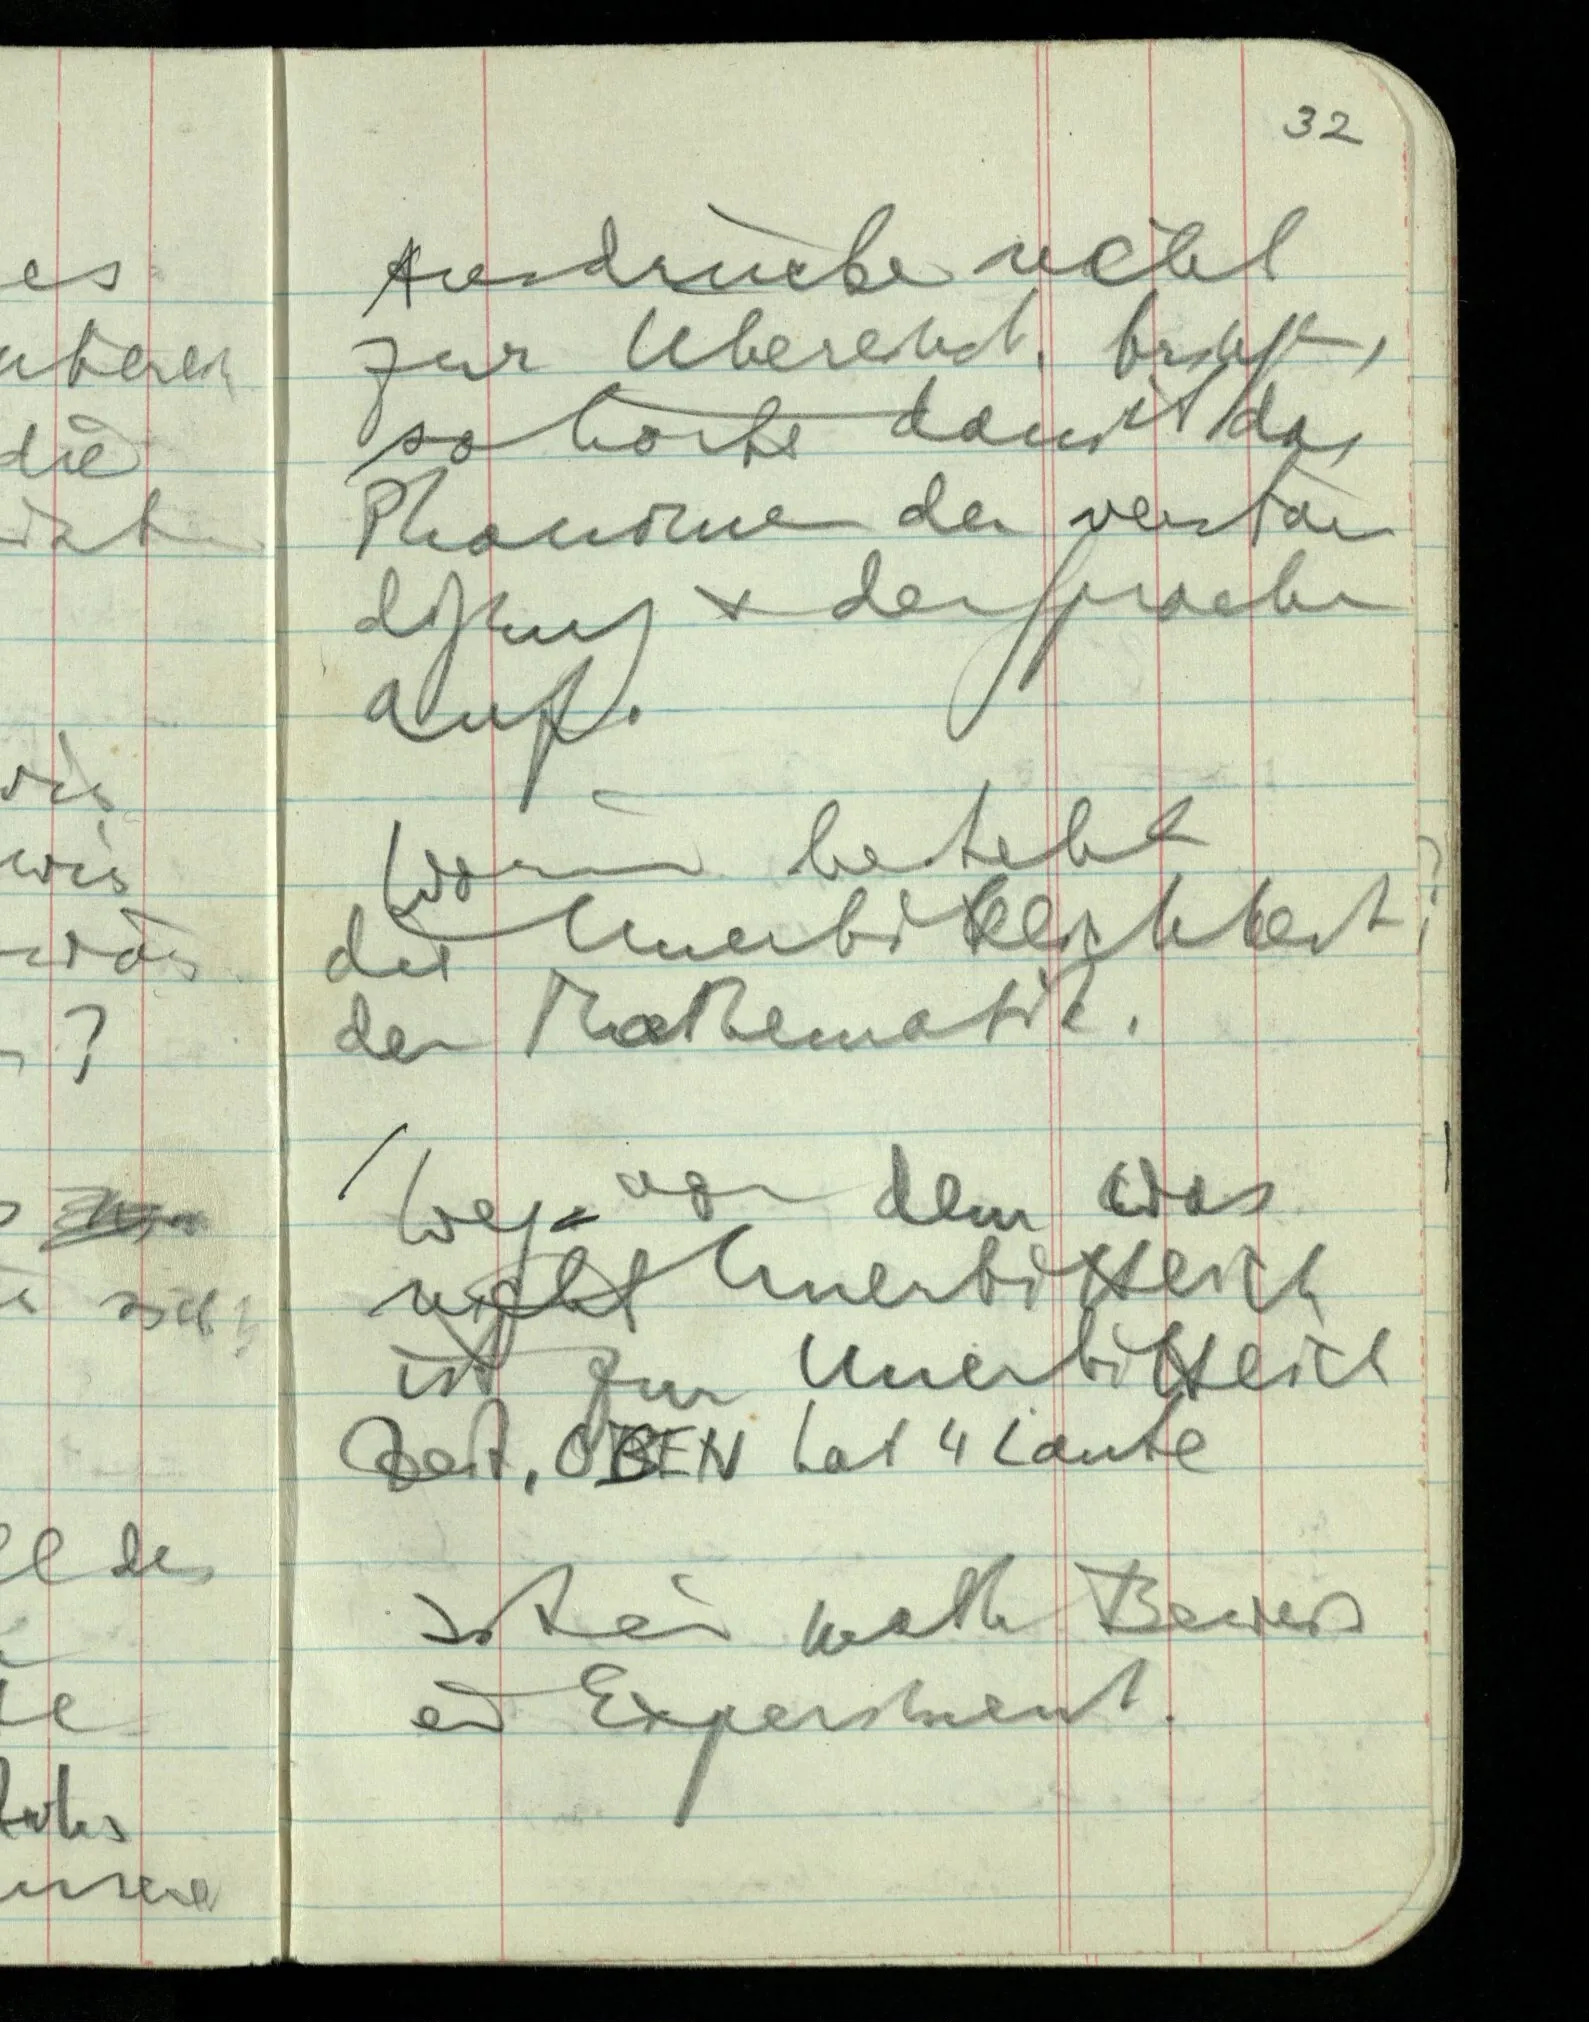 32
es
Ausdrücke nicht
zur Übereinst. bringt,
die
so hörte damit das
Phänomen der verstän
digung + der Sprache
auf.
wie
Worin besteht
wie
die Unerbittlichkeit?
der Mathematik.
?
Weg von dem was
nicht Unerbittlich
sich?
ist zur Unerbittlich
keit. OBEN hat 4 Laute
des
Ist ein math Beweis
ein Experiment.